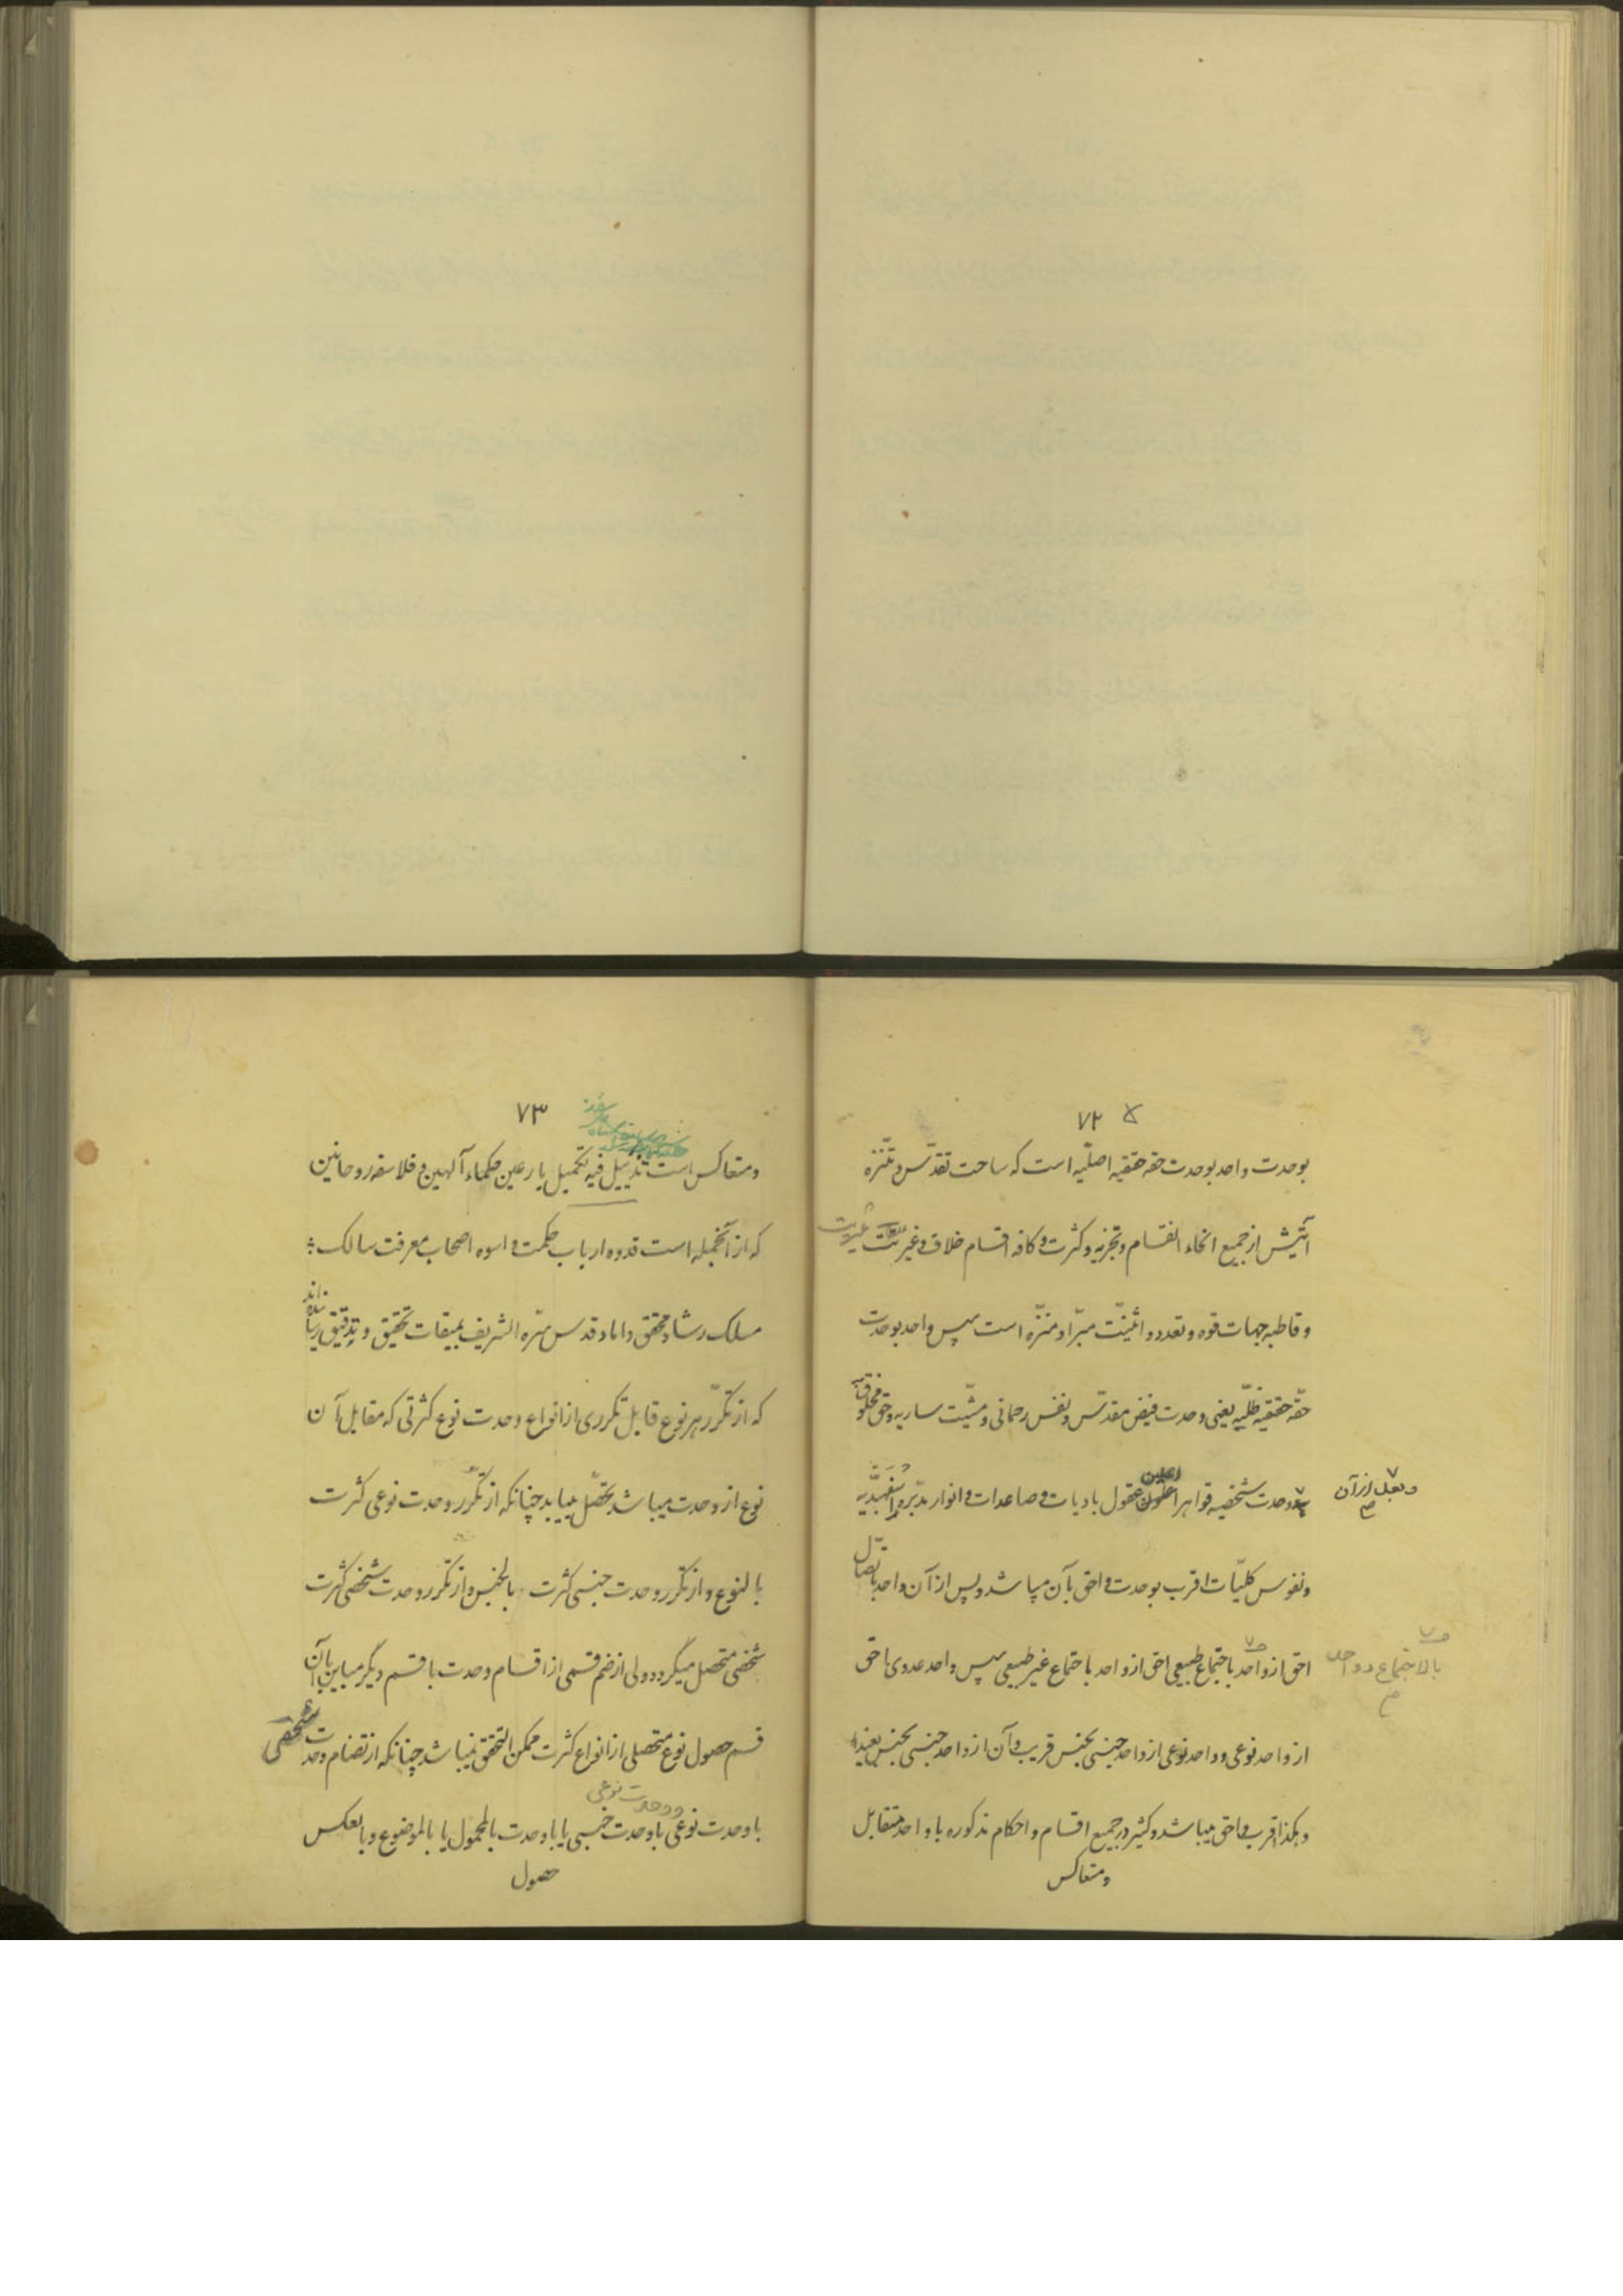 ۷۲
بوحدت واحد بوحدت حقه حقیقیه اصلّیه است که ساحت تقدّس و تنّزه
از جمیع انحاء انقسام و تجزیه و کثرت و کافه اقسام خلاف و غیریت
و قاطبه جهات قوه و تعدد و اثنینّت مبّرا و منّزه است سپس واحد بوحدت
حقّه حقیقیه ظلّیه یعنی وحدت فیض مقدّس و نفس رحمانی و مشّیت ساریه و حق مخلوق به
وحدت شخصیه قواهر اعلین عقول بادیات و صاعدات و انوار مدّبره اسفهبدّیه
و بعد از آن
و نفوس کلیّات اقرب بوحدت و احق بآن میباشد و پس از آن واحد باتصّال
احق از واحد باجتماع طبیعی احق از واحد باجتماع غیر طبیعی سپس واحد عددی احق
بالاجتماع و واحد
از واحد نوعی و واحد نوعی از واحد جنسی بجنس قریب و آن از واحد جنسی بجنس بعید
و هکذا اقرب و احق میباشد و کثیر در جمیع اقسام و احکام مذکوره با واحد متقابل
و متعاکس
۷۳
و متعاکس است تذییل فیه تکمیل یا رعین حکماء آلهین و فلاسفه روحانین
که از آنجمله است قدوه ارباب حکمت و اسوه اصحاب معرفت سالک
مسلک رشاد محقق داماد قدس سّره الشریف بمیقات تحقیق و تدقیق رسانده‌اند
که از تکّرر هر نوع قابل تکرری از انواع وحدت نوع کثرتی که مقابل آن
نوع از وحدت میباشد تحصّل مییابد چنانکه از تکّرر وحدت نوعی کثرت
بالنوع و از تکرر وحدت جنسی کثرت بالجنس و از تکرر وحدت شخصی کثرت
شخصی متحصل میگردد ولی از ضم قسمی از اقسام وحدت با قسم دیگر مباین بآن
قسم حصول نوع متحصلی از انواع کثرت ممکن التحقق نمیباشد چنانکه از انضمام وحدت شخصی
و وحدت نوعی
با وحدت نوعی با وحدت جنسی یا با وحدت بالمحمول یا بالموضوع و بالعکس
حصول